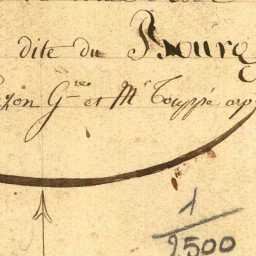 dite du Bourg
Gres et Mr Touppé
1
2500